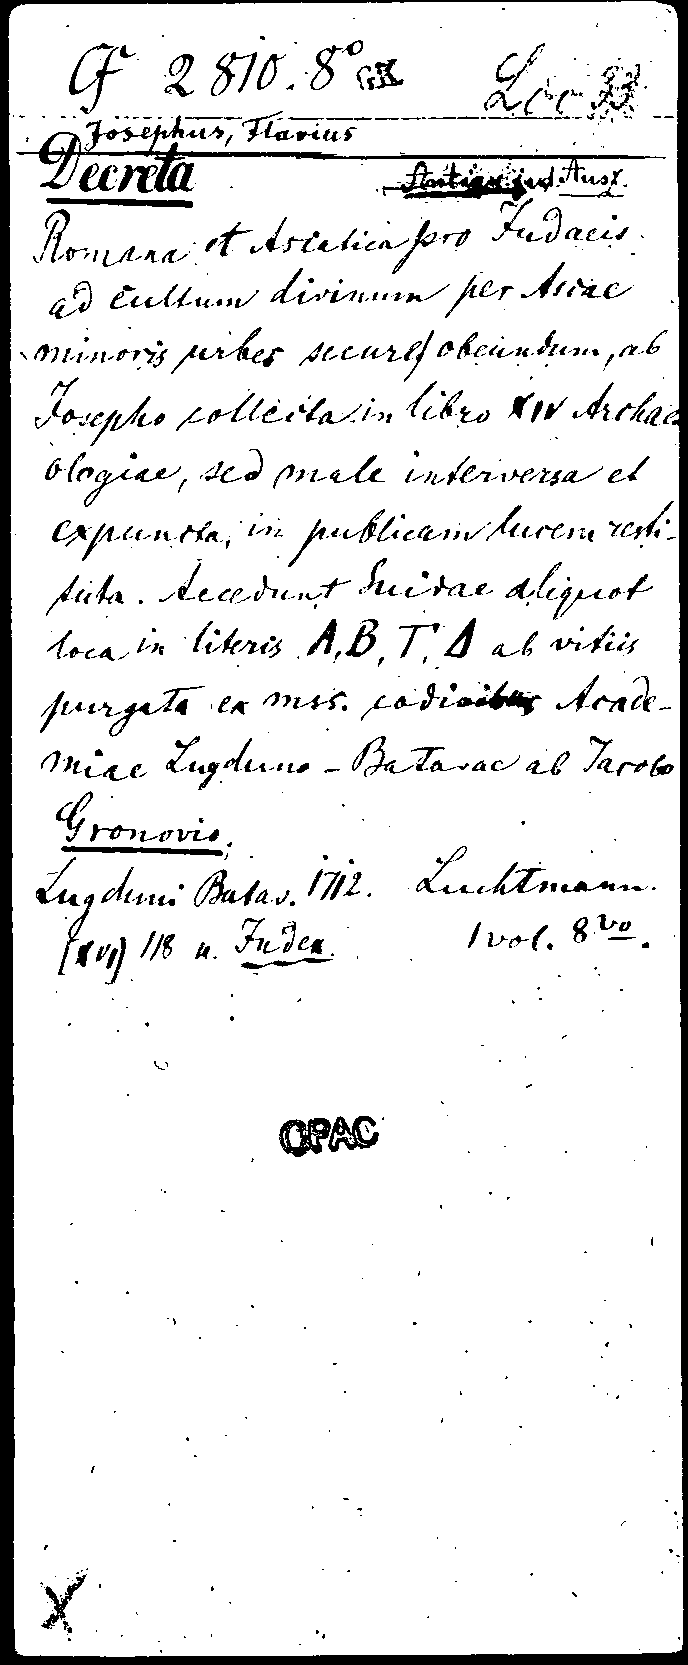 CF 2810.8° GK Loc 33
Josephus, Flavius
Decreta Antiqu. jud. Ausz.
Romana et Asiatica pro Judaeis
ad cultum divinum per Asiae
minoris urbes secure obeundum, ab
Josepho collecta in libro XIV Archae-
ologiae, sed male interversa et
expuncta, in publicam lucem resti-
tuta. Accedunt Suidae aliquot
loca in literis A, B, Γ, Δ ab vitiis
purgata ex mss. codicibus Acade-
miae Lugduno-Batavae ab Jacobo
Gronovio.
Lugduni Batav. 1712. Luchtmann.
(XVI) 118 u. Index. 1 vol. 8vo.
OPAC
X